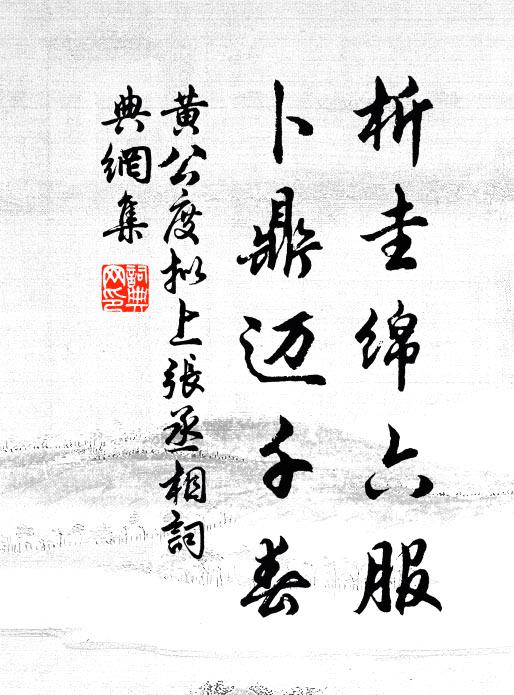 析圭绵六服
卜鼎迈千春
黄公度拟上張丞相詞
典網集
詞典网印